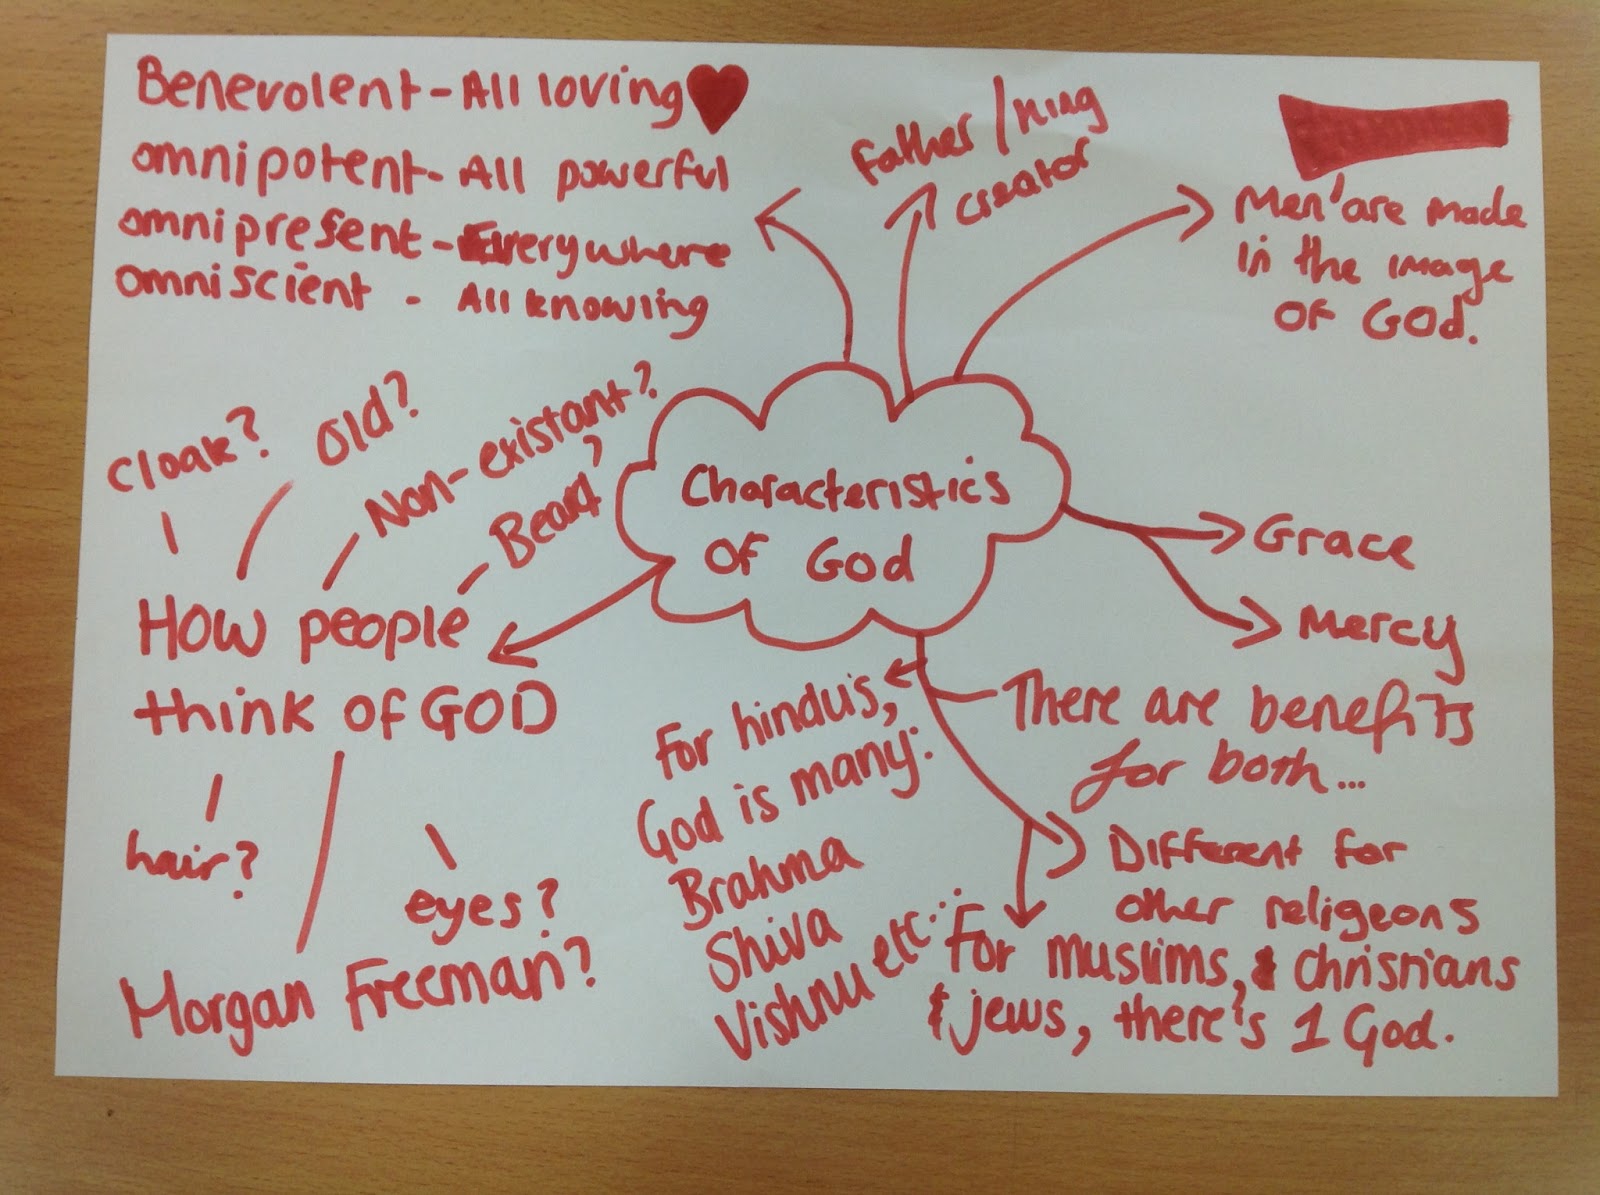 Benevolent - All loving
omnipotent - All powerful
omnipresent - Everywhere
omniscient - All knowing
Father / King
creator
Men are made
in the image
of God.
Cloak?
Old?
Non-existant?
Beard?
How people
think of GOD
hair?
eyes?
Morgan Freeman?
Characteristics
of God
Grace
Mercy
There are benefits
for both...
For hindu's,
God is many:
Brahma
Shiva
Vishnu etc...
Different for
other religeons
For muslims, & christians
& jews, there's 1 God.